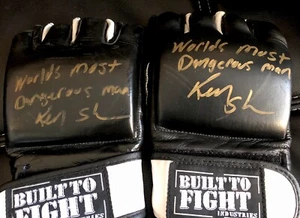 Worlds most
Dangerous man
Ken Sh
BUILT TO
FIGHT
INDUSTRIES
Worlds most
Dangerous man
Ken Sh
BUILT TO
FIGHT
INDUSTRIES